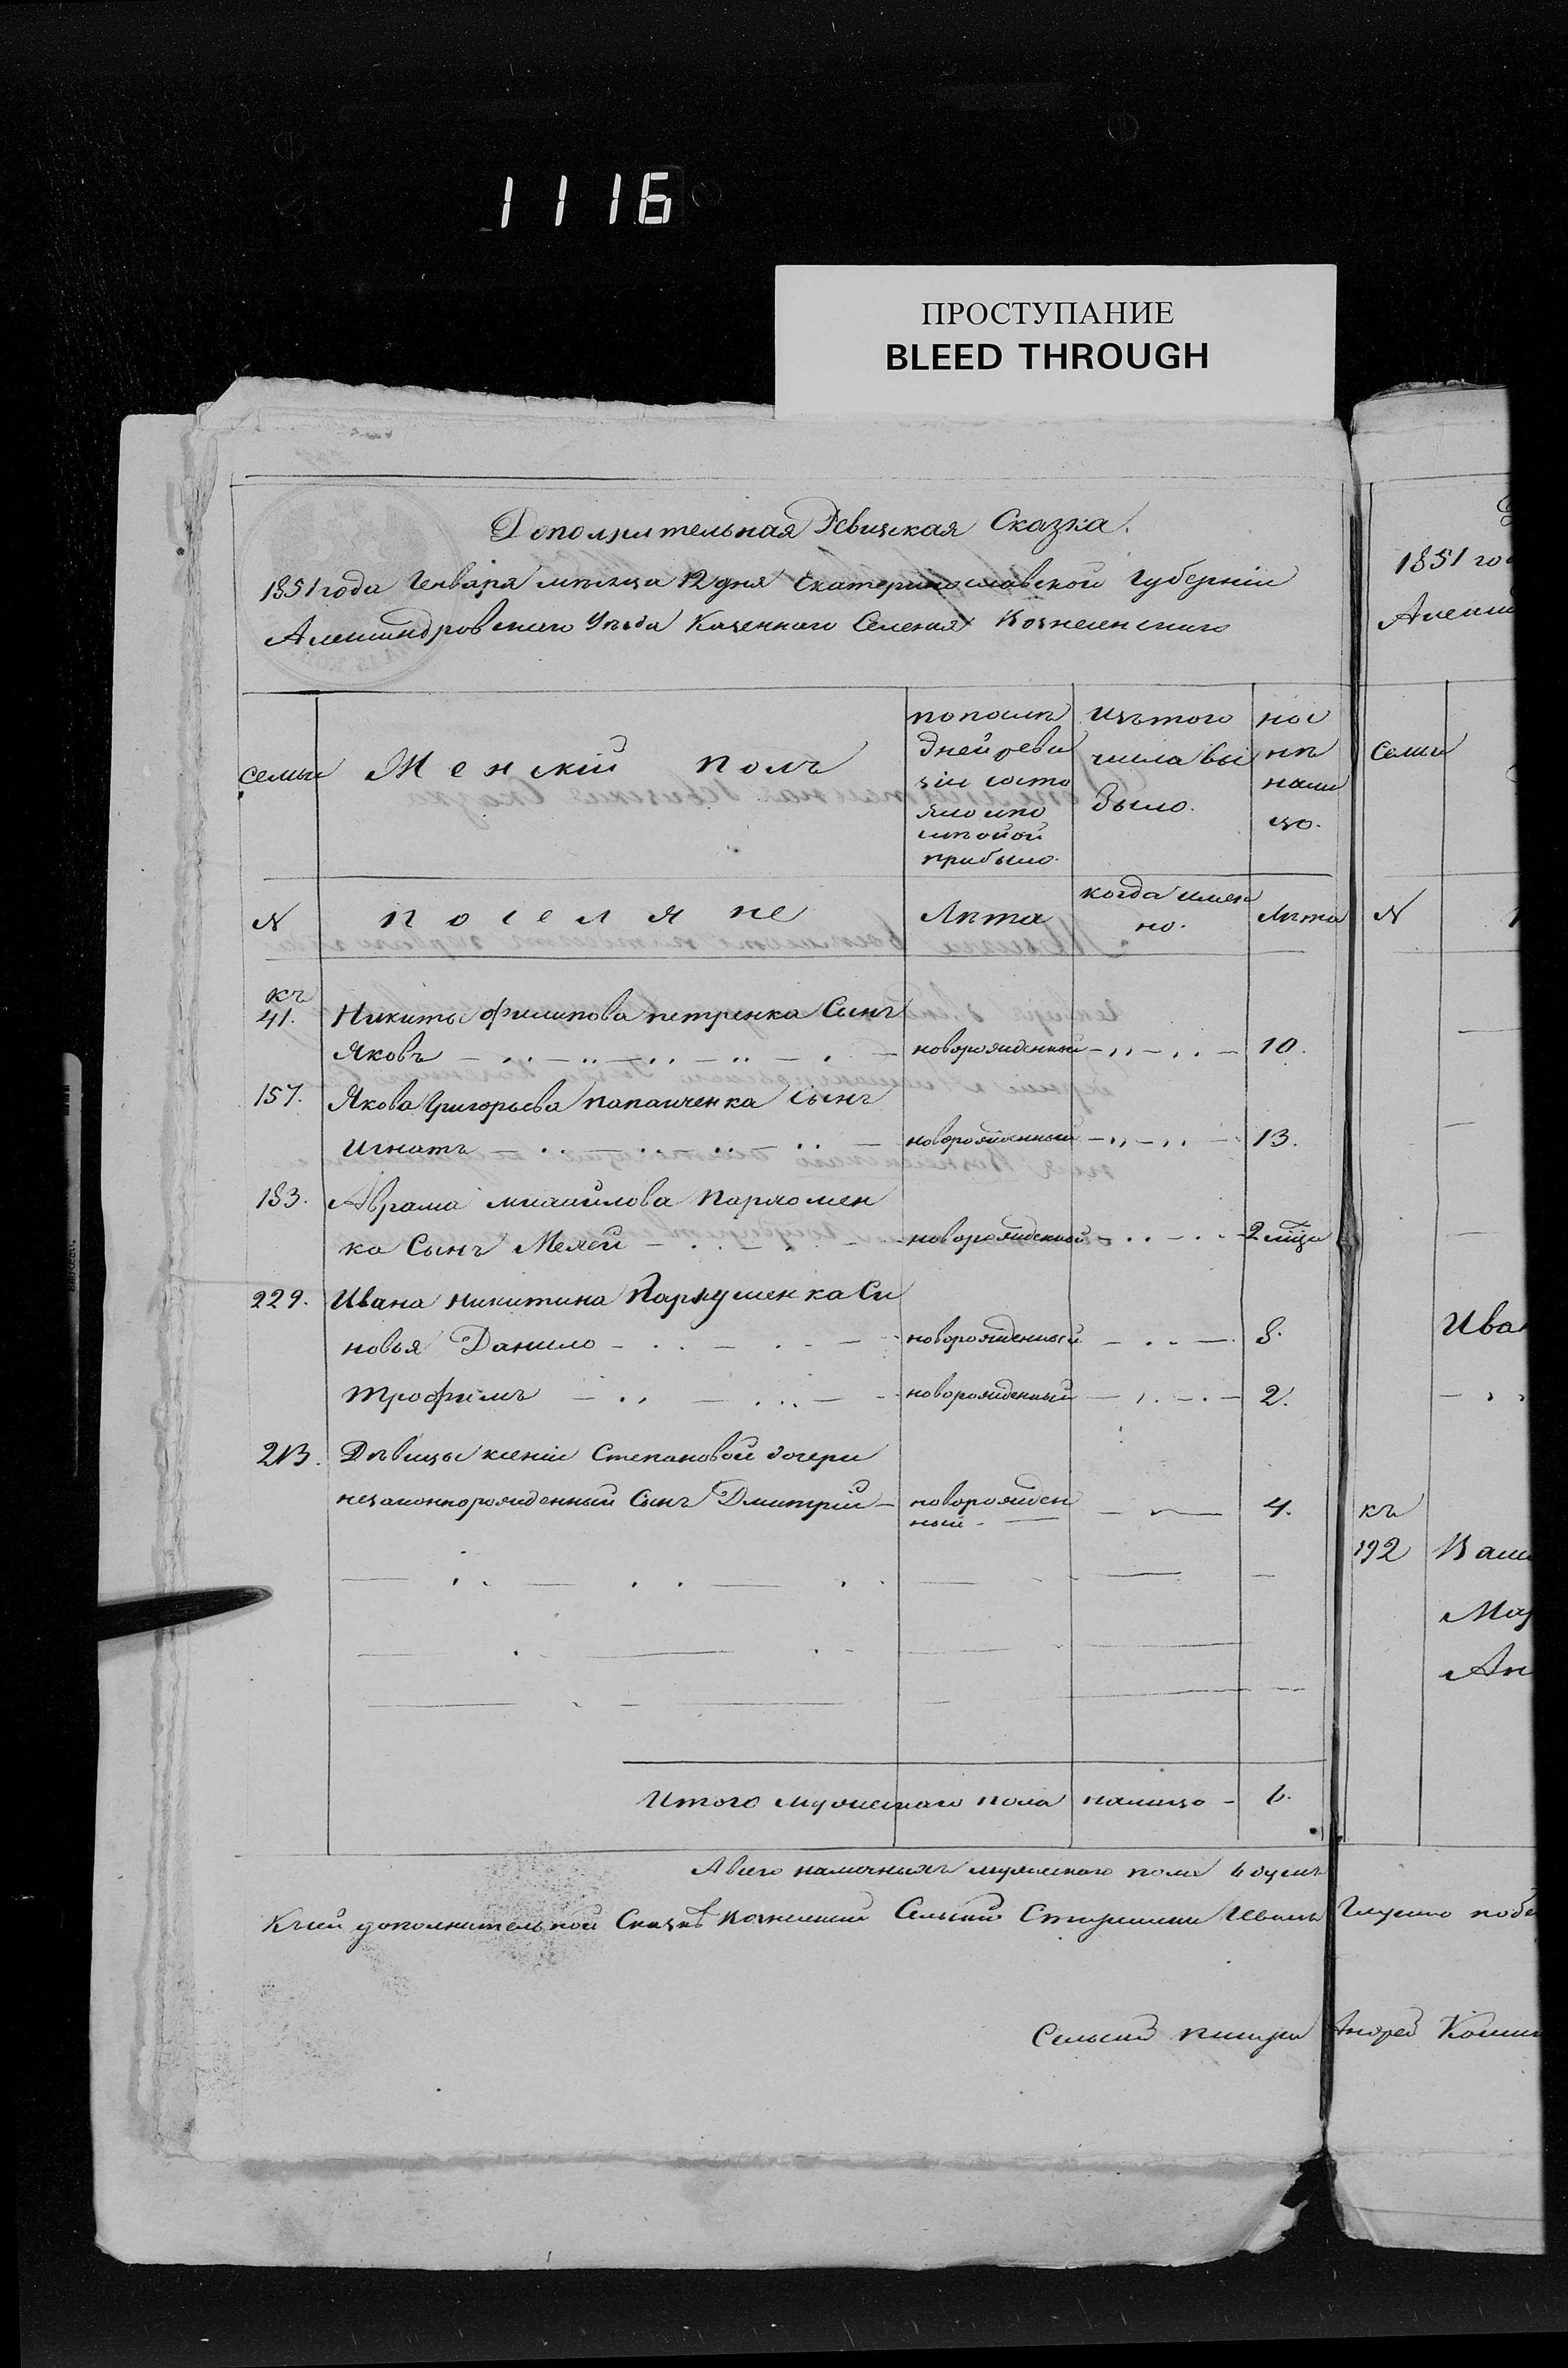 1116
ПРОСТУПАНИЕ
BLEED THROUGH
Дополнительная Ревизская Сказка.
1851 года Генваря месяца 12 дня Екатеринославской Губерніи
Александровскаго Уѣзда Казеннаго Селенія Вознесенскаго
1851 го
Алекса
семьи
Менскій полъ
попослѣ
дней реви
зіи состо
яло и по
слѣ оной
прибыло.
изъ того
числа вы
было.
нос
нѣ
нали
цо.
семьи
N
поселяне
Лѣта
когда имен
но.
Лѣта
N
къ
41.
Никиты Филипова петренка Сынъ
Яковъ
новорожденный
10.
157.
Якова Григорьева папаиченка сынъ
Игнатъ
новорожденный
13.
183.
Аврама михайлова пархомен
ка Сынъ Мелей
новорожденный
2 мца
229.
Ивана никитина Пархуменка Си
новья Данило
новорожденный
8.
Ива
трофимъ
новорожденный
2.
213.
Дѣвицы ксеніи Степановой дочери
незаконнорожденный Сынъ Дмитрій
новорожден
ный
4.
къ
192
Ма
Ан
Итого мужескаго пола налицо
6.
А всего наличныхъ мужескаго пола 6 душъ
К сей дополнительной Сказкѣ вознесенскій Сельскій Старшина Иванъ Глушко
Сельскій писарь Андрей